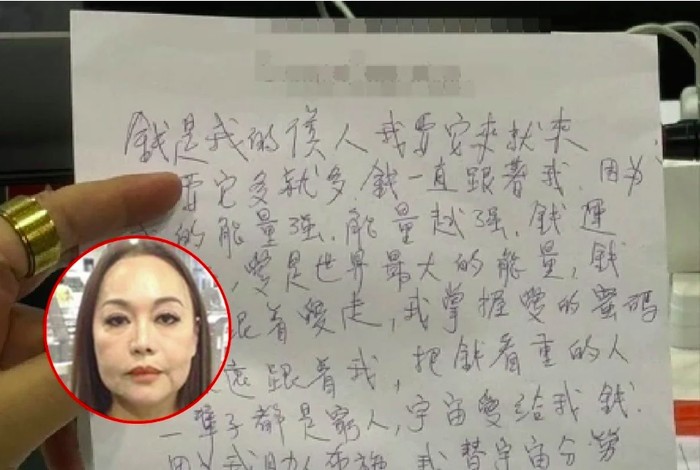 錢是我的僕人我要它來就來
要它多就多.錢一直跟著我.因为
的能量强.能量越强.錢運
,愛是世界最大的能量,錢
跟着愛走,我掌握愛的蜜码
跟着我,把錢看重的人
一輩子都是窮人,宇宙愛给我錢.
因为我助人布施 我替宇宙分勞